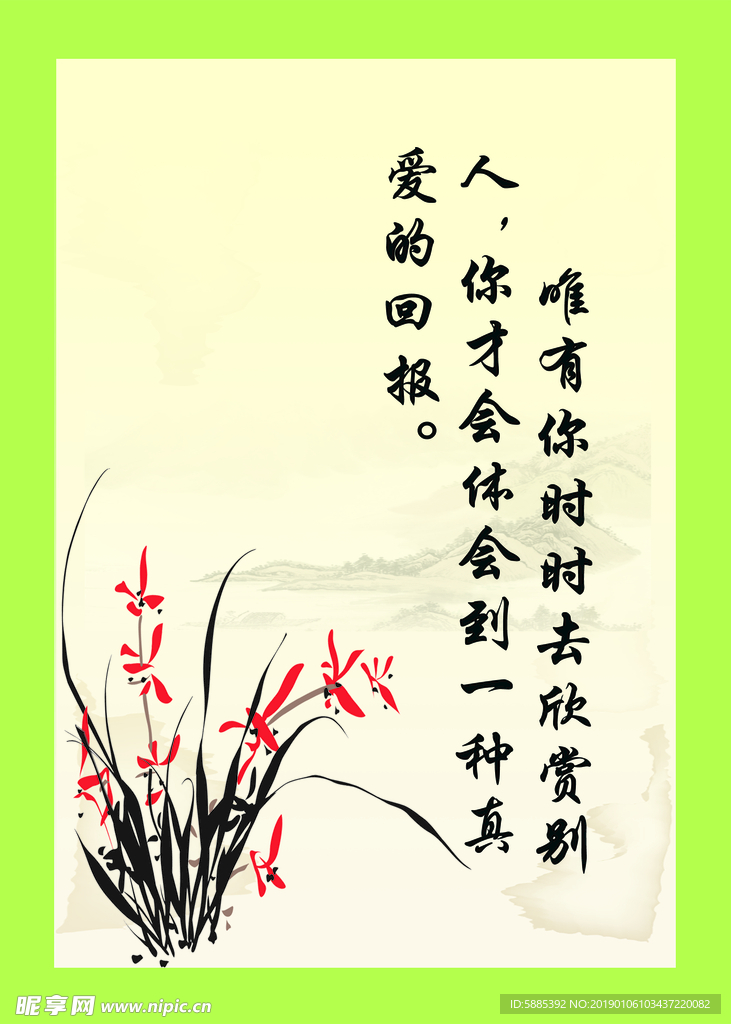 唯有你时时去欣赏别
人，你才会体会到一种真
爱的回报。
昵享网 www.nipic.cn
ID:5885392 NO:20190106103437220082